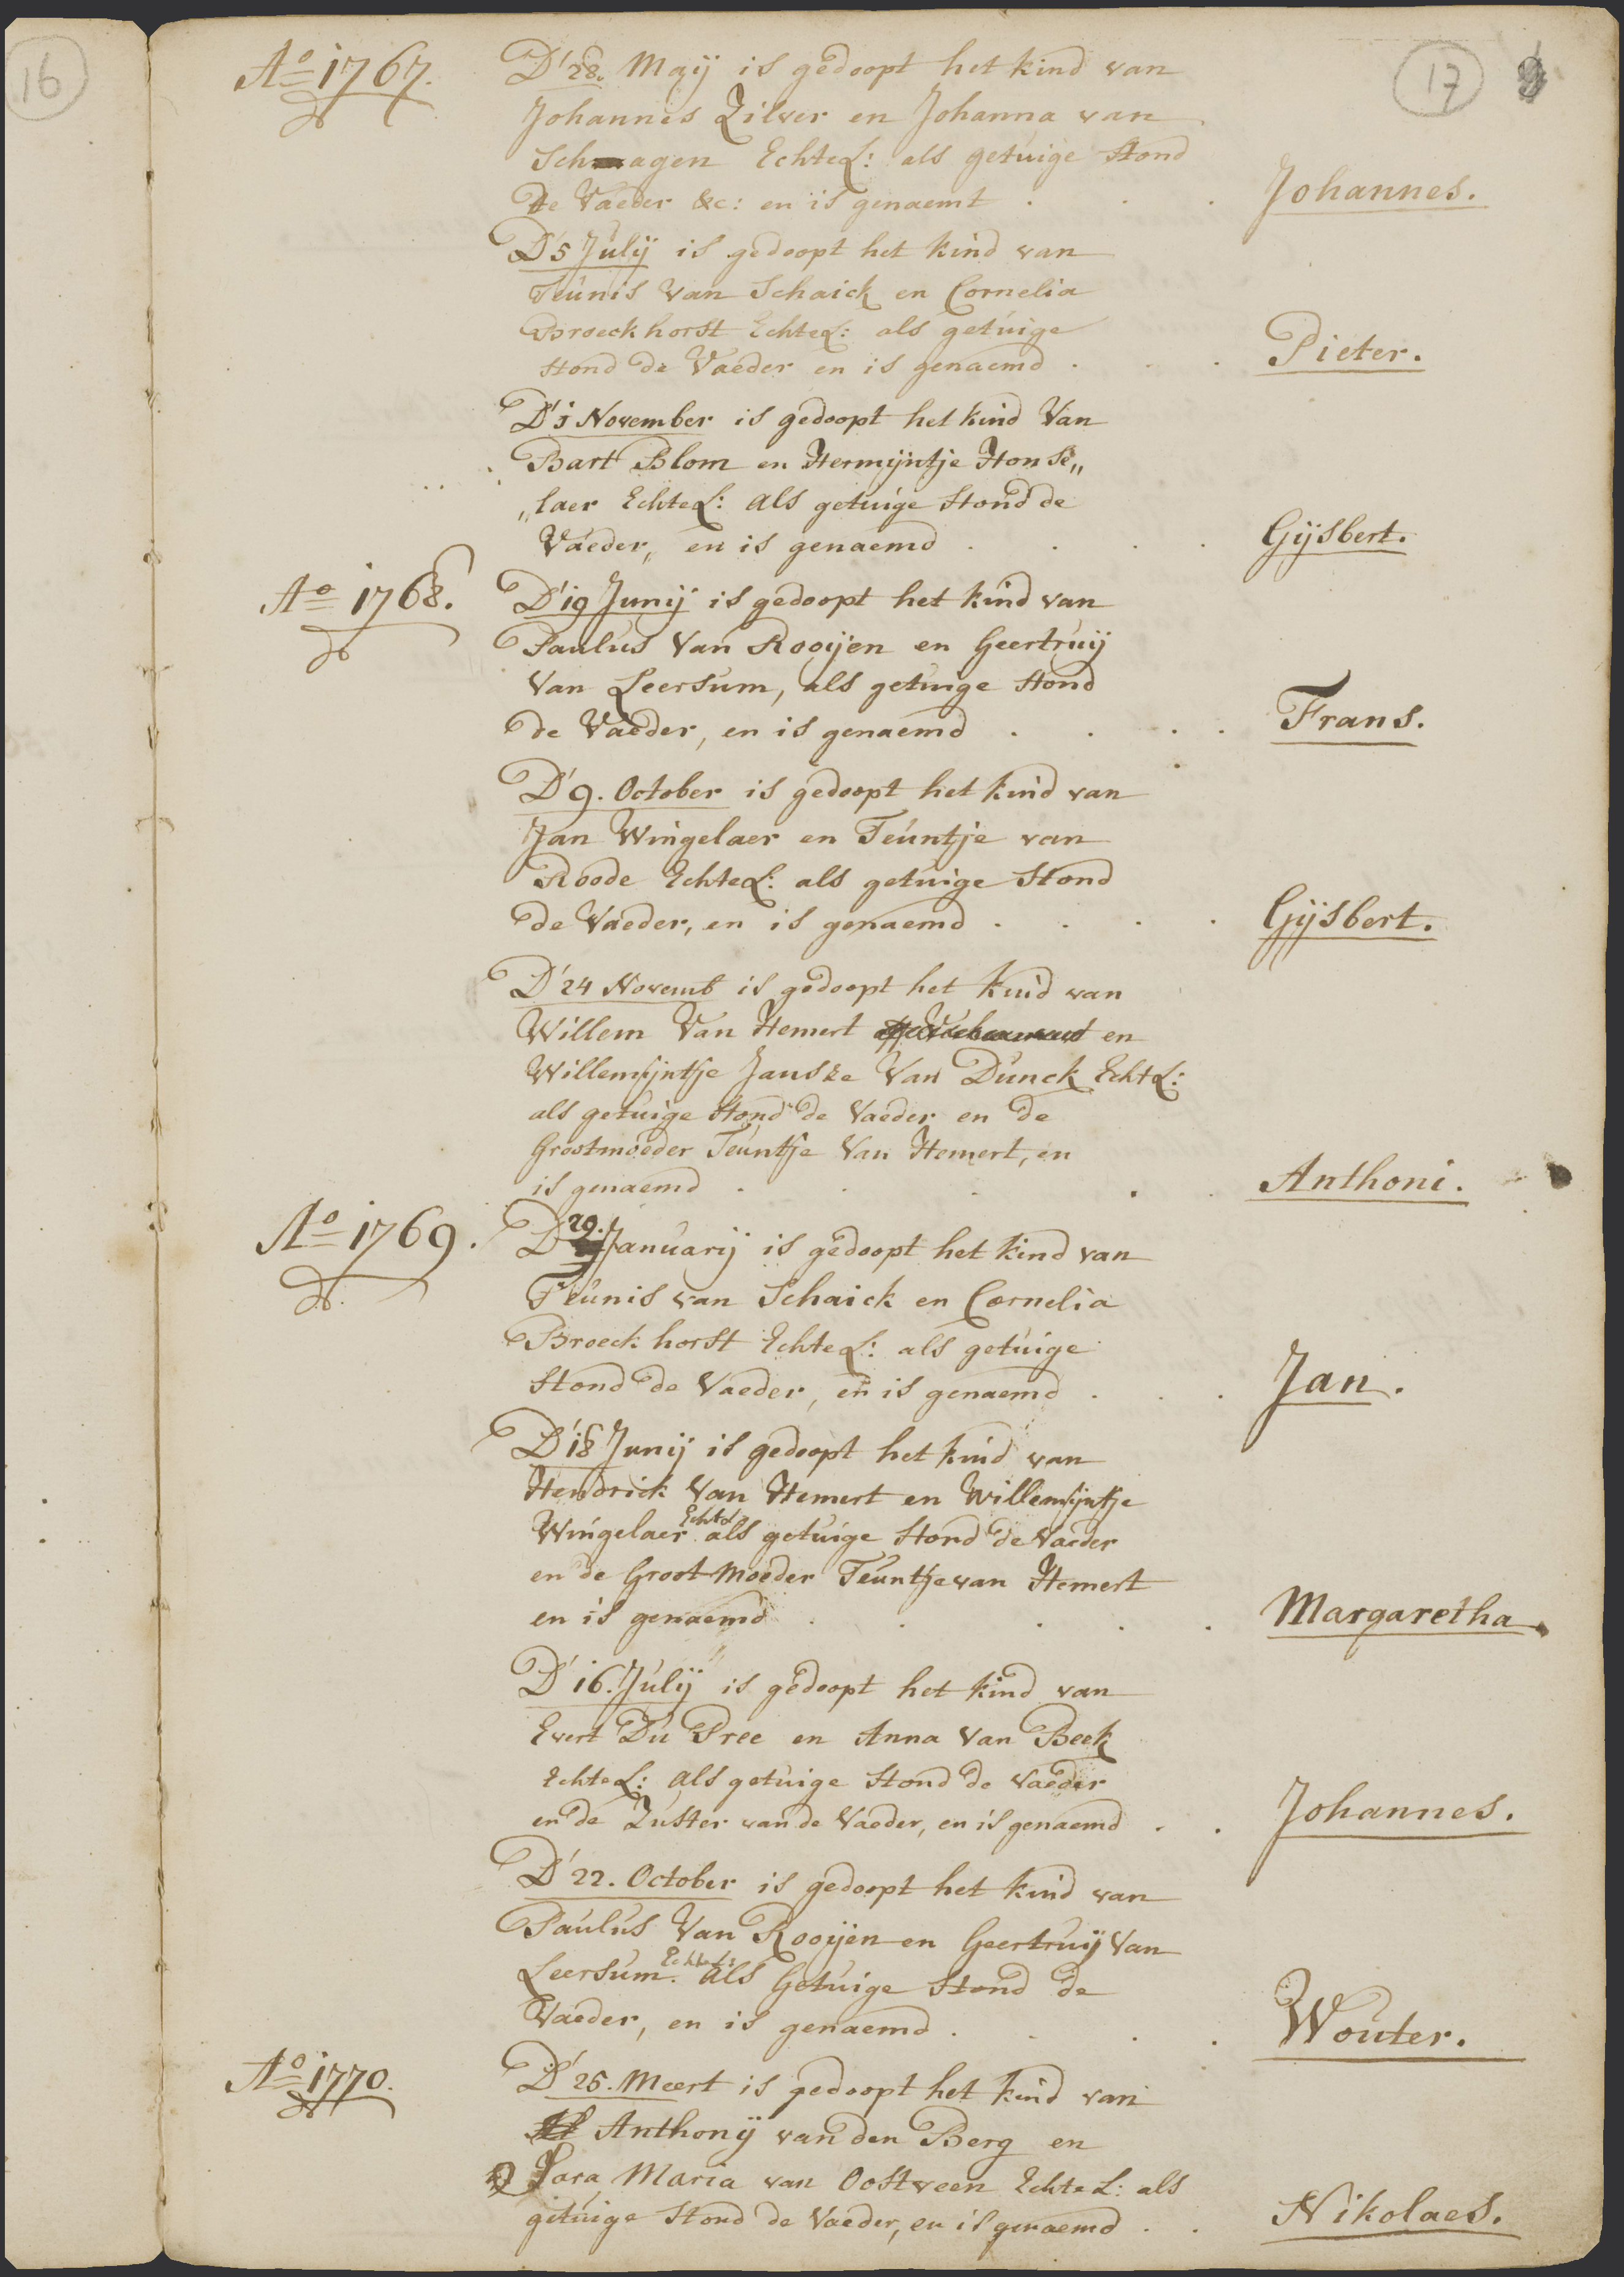 16
17
Ao 1767.
D' 28. Maij is gedoopt het kind van
Johannes Zilver en Johanna van
Schagen Echtel: als getuige stond
de Vaeder &c: en is genaemt . . .
Johannes.
D' 5 Julij is gedoopt het kind van
Teunis Van Schaick en Cornelia
Broeckhorst Echtel: als getuige
stond de Vaeder en is genaemd . . .
Pieter.
D' 1 November is gedoopt het kind Van
Bart Blom en Hermijntje Honse„
„laer Echtel: als getuige Stond de
Vaeder, en is genaemd . . . .
Gijsbert.
Ao 1768.
D' 19 Junij is gedoopt het kind van
Paulus Van Rooijen en Geertruij
Van Leersum, als getuige stond
de Vaeder, en is genaemd . . . .
Frans.
D' 9. October is gedoopt het kind van
Jan Wingelaer en Teuntje van
Roode Echtel: als getuige Stond
de Vaeder, en is genaemd . . . .
Gijsbert.
D' 24 Novemb is gedoopt het kind van
Willem Van Hemert en
Willemijntje Janske Van Dunck Echtl:
als getuige stond de Vaeder en de
Grootmoeder Teuntje Van Hemert, en
is genaemd . . . . .
Anthoni.
Ao 1769.
D' 29. Januarij is gedoopt het kind van
Teunis van Schaick en Cornelia
Broeckhorst Echtel: als getuige
Stond de Vaeder, en is genaemd . . .
Jan.
D' 18 Junij is gedoopt het kind van
Hendrick Van Hemert en Willemijntje
Wingelaer Echtel als getuige Stond de Vaeder
en de Groot Moeder Teuntje van Hemert
en is genaemd . . . . .
Margaretha.
D' 16. Julij is gedoopt het kind van
Evert Du Pree en Anna Van Beek
Echtel: als getuige Stond de Vaeder
en de Zuster van de Vaeder, en is genaemd . .
Johannes.
D' 22. October is gedoopt het kind van
Paulus Van Rooijen en Geertruij Van
Leersum. Echtel: als Getuige Stond de
Vaeder, en is genaemd . . . .
Wouter.
Ao 1770.
D' 25. Meert is gedoopt het kind van
Anthonij van den Berg en
Sara Maria van Oostveen Echtel: als
getuige Stond de Vaeder, en is genaemd . .
Nikolaes.